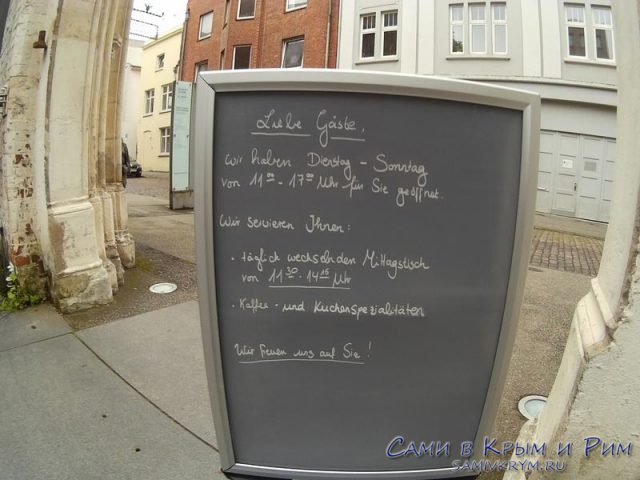 Liebe Gäste,
wir haben Dienstag - Sonntag
von 11⁰⁰ - 17⁰⁰ Uhr für Sie geöffnet.
Wir servieren Ihnen:
• täglich wechselnden Mittagstisch
von 11³⁰ - 14¹⁵ Uhr
• Kaffee - und Kuchenspezialitäten
Wir freuen uns auf Sie!
Сами в Крым и Рим
SAMIVKRYM.RU